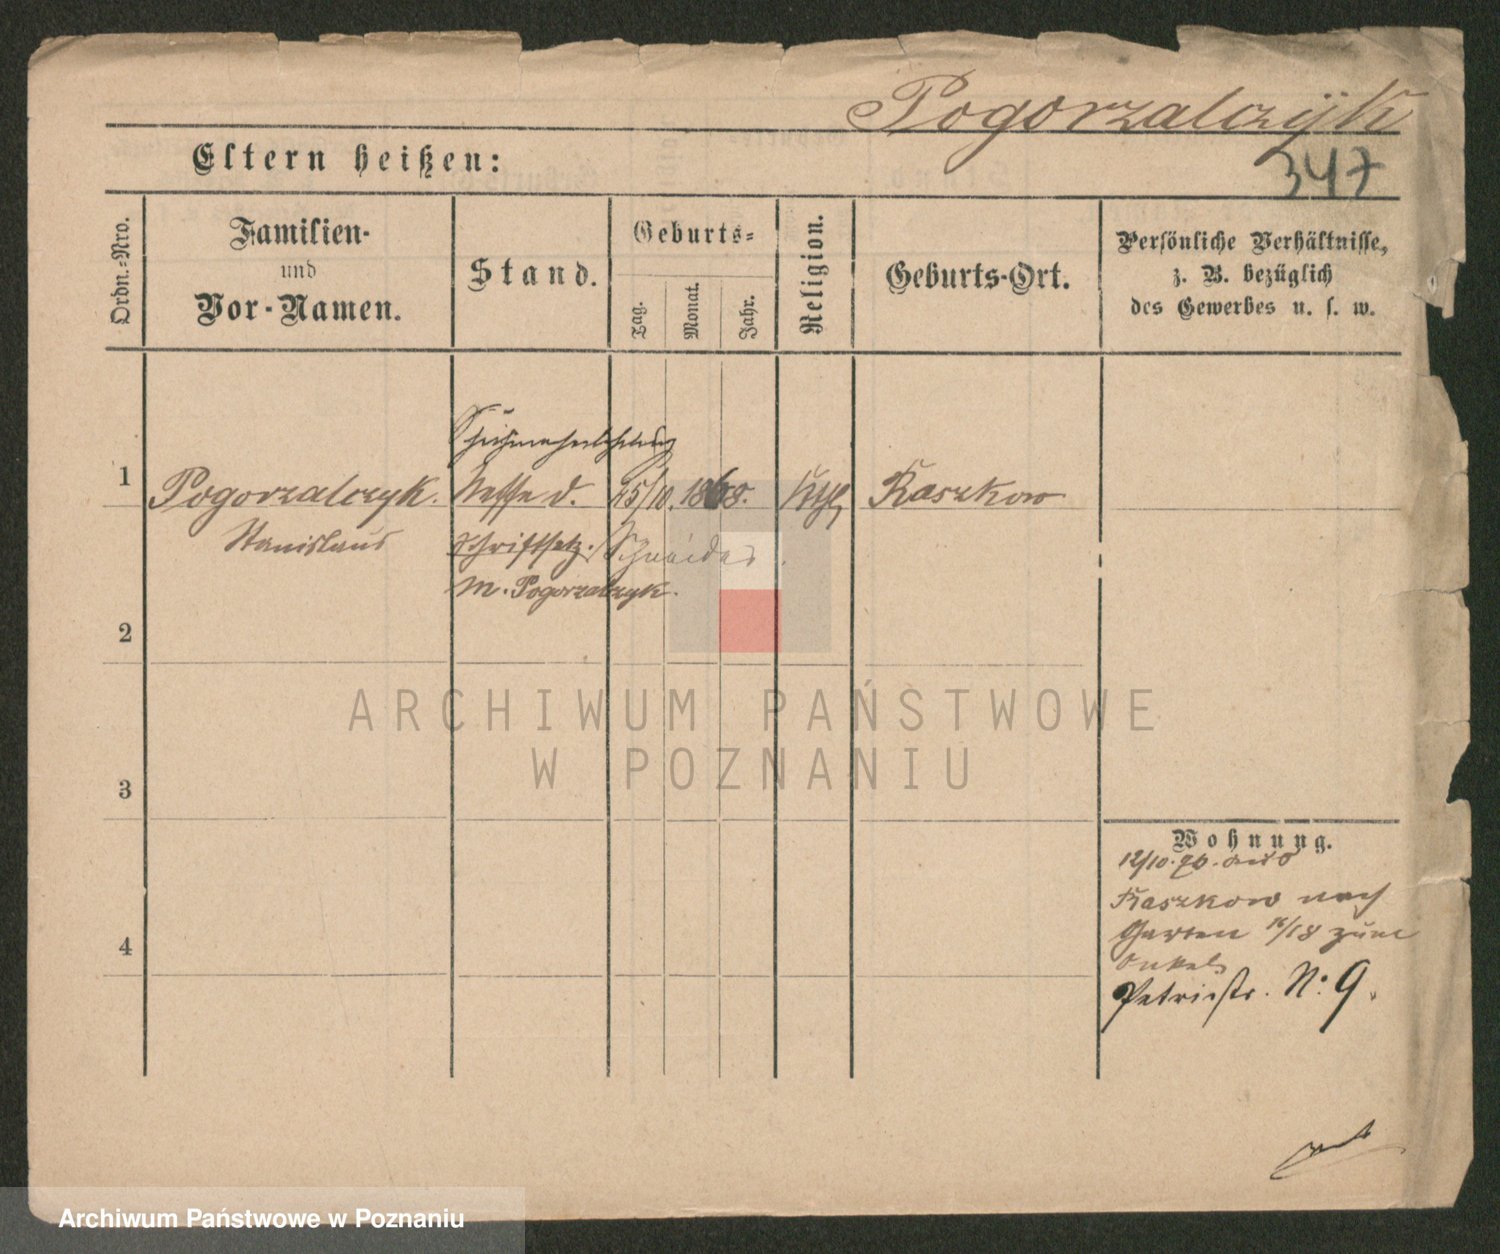 Pogorzalczÿk
347
Eltern heißen:
Ordn.-Nro.
Familien-
und
Vor-Namen.
Stand.
Geburts-
Tag.
Monat.
Jahr.
Religion.
Geburts-Ort.
Persönliche Verhältnisse,
z. B. bezüglich
des Gewerbes u. s. w.
1
Pogorzalczyk.
Stanislaus
Neffe d.
Schriftsetz. Schneider.
M. Pogorzalczyk.
15/10. 1868.
Kth.
Raszkow
2
3
4
Wohnung.
12/10. 90. aus
Raszkow nach
Garten 16/18 zum
Onkel
Petristr. N: 9.
ARCHIWUM PAŃSTWOWE
W POZNANIU
Archiwum Państwowe w Poznaniu